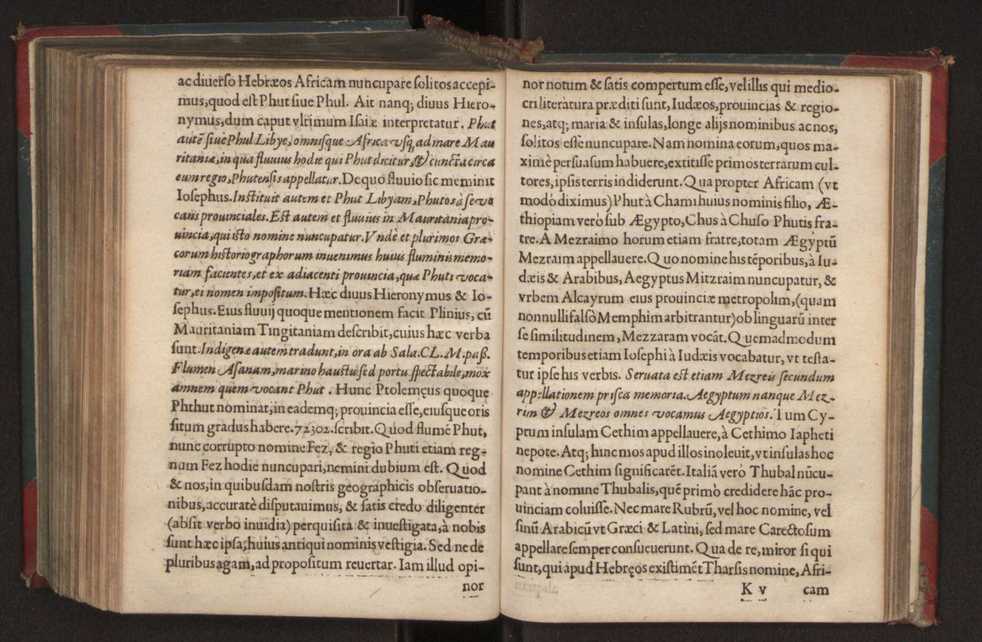 ac diuerso Hebræos Africam nuncupare solitos accepi-
mus, quod est Phut siue Phul. Ait nanq; diuus Hiero-
nymus, dum caput vltimum Isaiæ interpretatur. Phut
autē siue Phul Libye, omnisque Africa vsq, ad mare Mau
ritaniæ, in qua fluuius hodie qui Phut dicitur, & cuncta circa
eum regio, Phutensis appellatur. De quo fluuio sic meminit
Iosephus. Instituit autem et Phut Libyam, Phutos à se vo
cans prouinciales. Est autem et fluuius in Mauritania pro-
uincia, qui isto nomine nuncupatur. Vndè et plurimos Græ-
corum historiographorum inuenimus huius fluminis memo-
riam facientes, et ex adiacenti prouincia, quæ Phuti voca-
tur, ei nomen impositum. Hæc diuus Hieronymus & Io-
sephus. Eius fluuij quoque mentionem facit Plinius, cū
Mauritaniam Tingitaniam describit, cuius hæc verba
sunt. Indigenæ autem tradunt, in ora ab Sala. CL. M. pass.
Flumen Asanam, marino haustu sed portu spectabile, mox
amnem quem vocant Phut. Hunc Ptolemęus quoque
Phthut nominat, in eademq; prouincia esse, eiusque oris
situm gradus habere. 72302. scribit. Quod flumē Phut,
nunc corrupto nomine Fez, & regio Phuti etiam reg-
num Fez hodie nuncupari, nemini dubium est. Quod
& nos, in quibusdam nostris geographicis obseruatio-
nibus, accuratè disputauimus, & satis credo diligenter
(absit verbo inuidia) perquisita & inuestigata, à nobis
sunt hæc ipsa, huius antiqui nominis vestigia. Sed ne de
pluribus agam, ad propositum reuertar. Iam illud opi-
nor
nor notum & satis compertum esse, vel illis qui medio-
cri literatura præditi sunt, Iudæos, prouincias & regio-
nes, atq; maria & insulas, longe alijs nominibus ac nos,
solitos esse nuncupare. Nam nomina eorum, quos ma-
ximè persuasum habuere, extitisse primos terrarum cul-
tores, ipsis terris indiderunt. Quapropter Africam (vt
modò diximus) Phut à Chami huius nominis filio, Æ-
thiopiam verò sub Ægypto, Chus à Chuso Phutis fra-
tre. A Mezraimo horum etiam fratre, totam Ægyptū
Mezraim appellauere. Quo nomine his tēporibus, à Iu-
dæis & Arabibus, Aegyptus Mitzraim nuncupatur, &
vrbem Alcayrum eius prouinciæ metropolim, (quam
nonnulli falsò Memphim arbitrantur) ob linguarū inter
se similitudinem, Mezzaram vocāt. Quemadmodum
temporibus etiam Iosephi à Iudæis vocabatur, vt testa-
tur ipse his verbis. Seruata est etiam Mezreis secundum
appellationem prisca memoria. Aegyptum nanque Mez-
rin & Mezreos omnes vocamus Aegyptios. Tum Cy-
prum insulam Cethim appellauere, à Cethimo Iapheti
nepote. Atq; hinc mos apud illos inoleuit, vt insulas hoc
nomine Cethim significarēt. Italiā verò Thubal nūcu-
pant à nomine Thubalis, quē primò credidere hāc pro-
uinciam coluisse. Nec mare Rubrū, vel hoc nomine, vel
sinū Arabicū vt Græci & Latini, sed mare Carectosum
appellare semper consueuerunt. Qua de re, miror si qui
sunt, qui apud Hebręos existimēt Tharsis nomine, Afri-
K v
cam